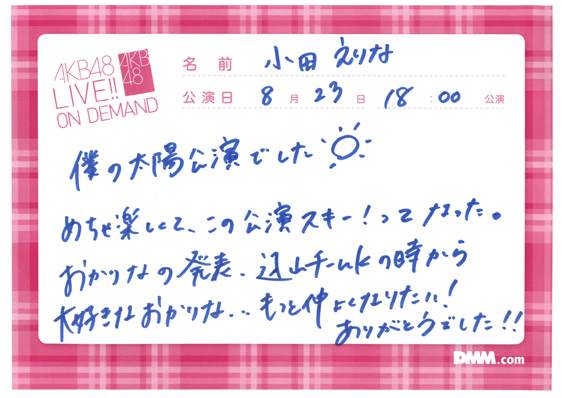 AKB48
LIVE!!
ON DEMAND
AKB
48
名前 小田えりな
公演日 8月23日 18:00 公演
僕の太陽公演でした
めちゃ楽しくて、この公演スキー!ってなった。
おかりなの発表、込山チームKの時から
大好きなおかりな... もっと仲よくなりたい!
ありがとうでした!!
DMM.com